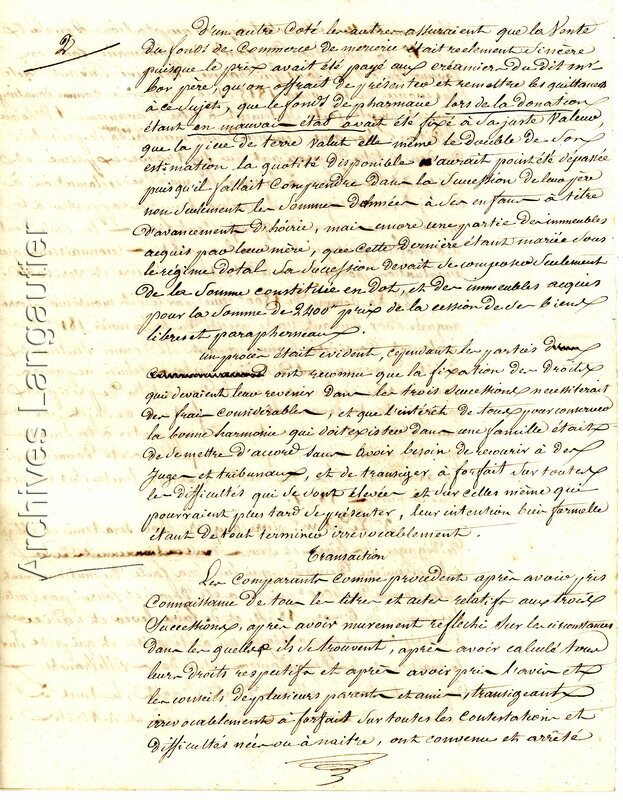 2
D'un autre coté les autres assuraient que la Vente
Du fonds de Commerce de mercerie était reelement Sincère
puisque le prix avait été payé aux créanciers du dit mr
bor père, qu'on offrait de présenter et remettre les quittances
à ce Sujet, que le fonds de pharmacie lors de la donation
étant en mauvais état avait été fixé à Sa juste Valeur,
que la pièce de terre Valut elle même le double de Son
estimation la quotité disponible n'aurait point été dépassée
puisqu'il fallait Comprendre dans la Succession de leur père
non Seulement les Sommes données à Ses enfans à titre
D'avancement D'hoirie, mais encore une partie des immeubles
acquis par leur mère, que cette dernière étant mariée Sous
le régime dotal Sa Succession devait Se composer Seulement
De la Somme constituée en Dot, et des immeubles acquis
pour la Somme de 2400f prix de la cession de Ses biens
libres et paraphernaux.
Un procès était évident, cependant les parties
ont reconnu que la fixation des Droits
qui devaient leur revenir Dans les trois Successions necessiterait
Des frais considérables, et que l'intérêt de tous pour conserver
la bonne harmonie qui doit exister dans une famille était
de Se mettre D'accord Sans avoir besoin de recourir à des
Juges et tribunaux, et de transiger à forfait Sur toutes
les difficultés qui Se Sont élevées et Sur celles même qui
pourraient plus tard Se présenter, leur intention bien formelle
étant de tout terminer irrévocablement.
Transaction
Les Comparants Comme procèdent après avoir pris
Connaissance de tous les titres et actes relatifs aux trois
Successions, après avoir murement reflechi Sur les circonstances
dans les quelles ils Se trouvent, après avoir calculé tous
leurs droits respectifs et après avoir pris l'avis et
les conseils de plusieurs parents et amis, transigeant
irrevocablement à forfait Sur toutes les Contestations et
Difficultés nées ou à naitre, ont convenu et arrêté
Archives Langautier